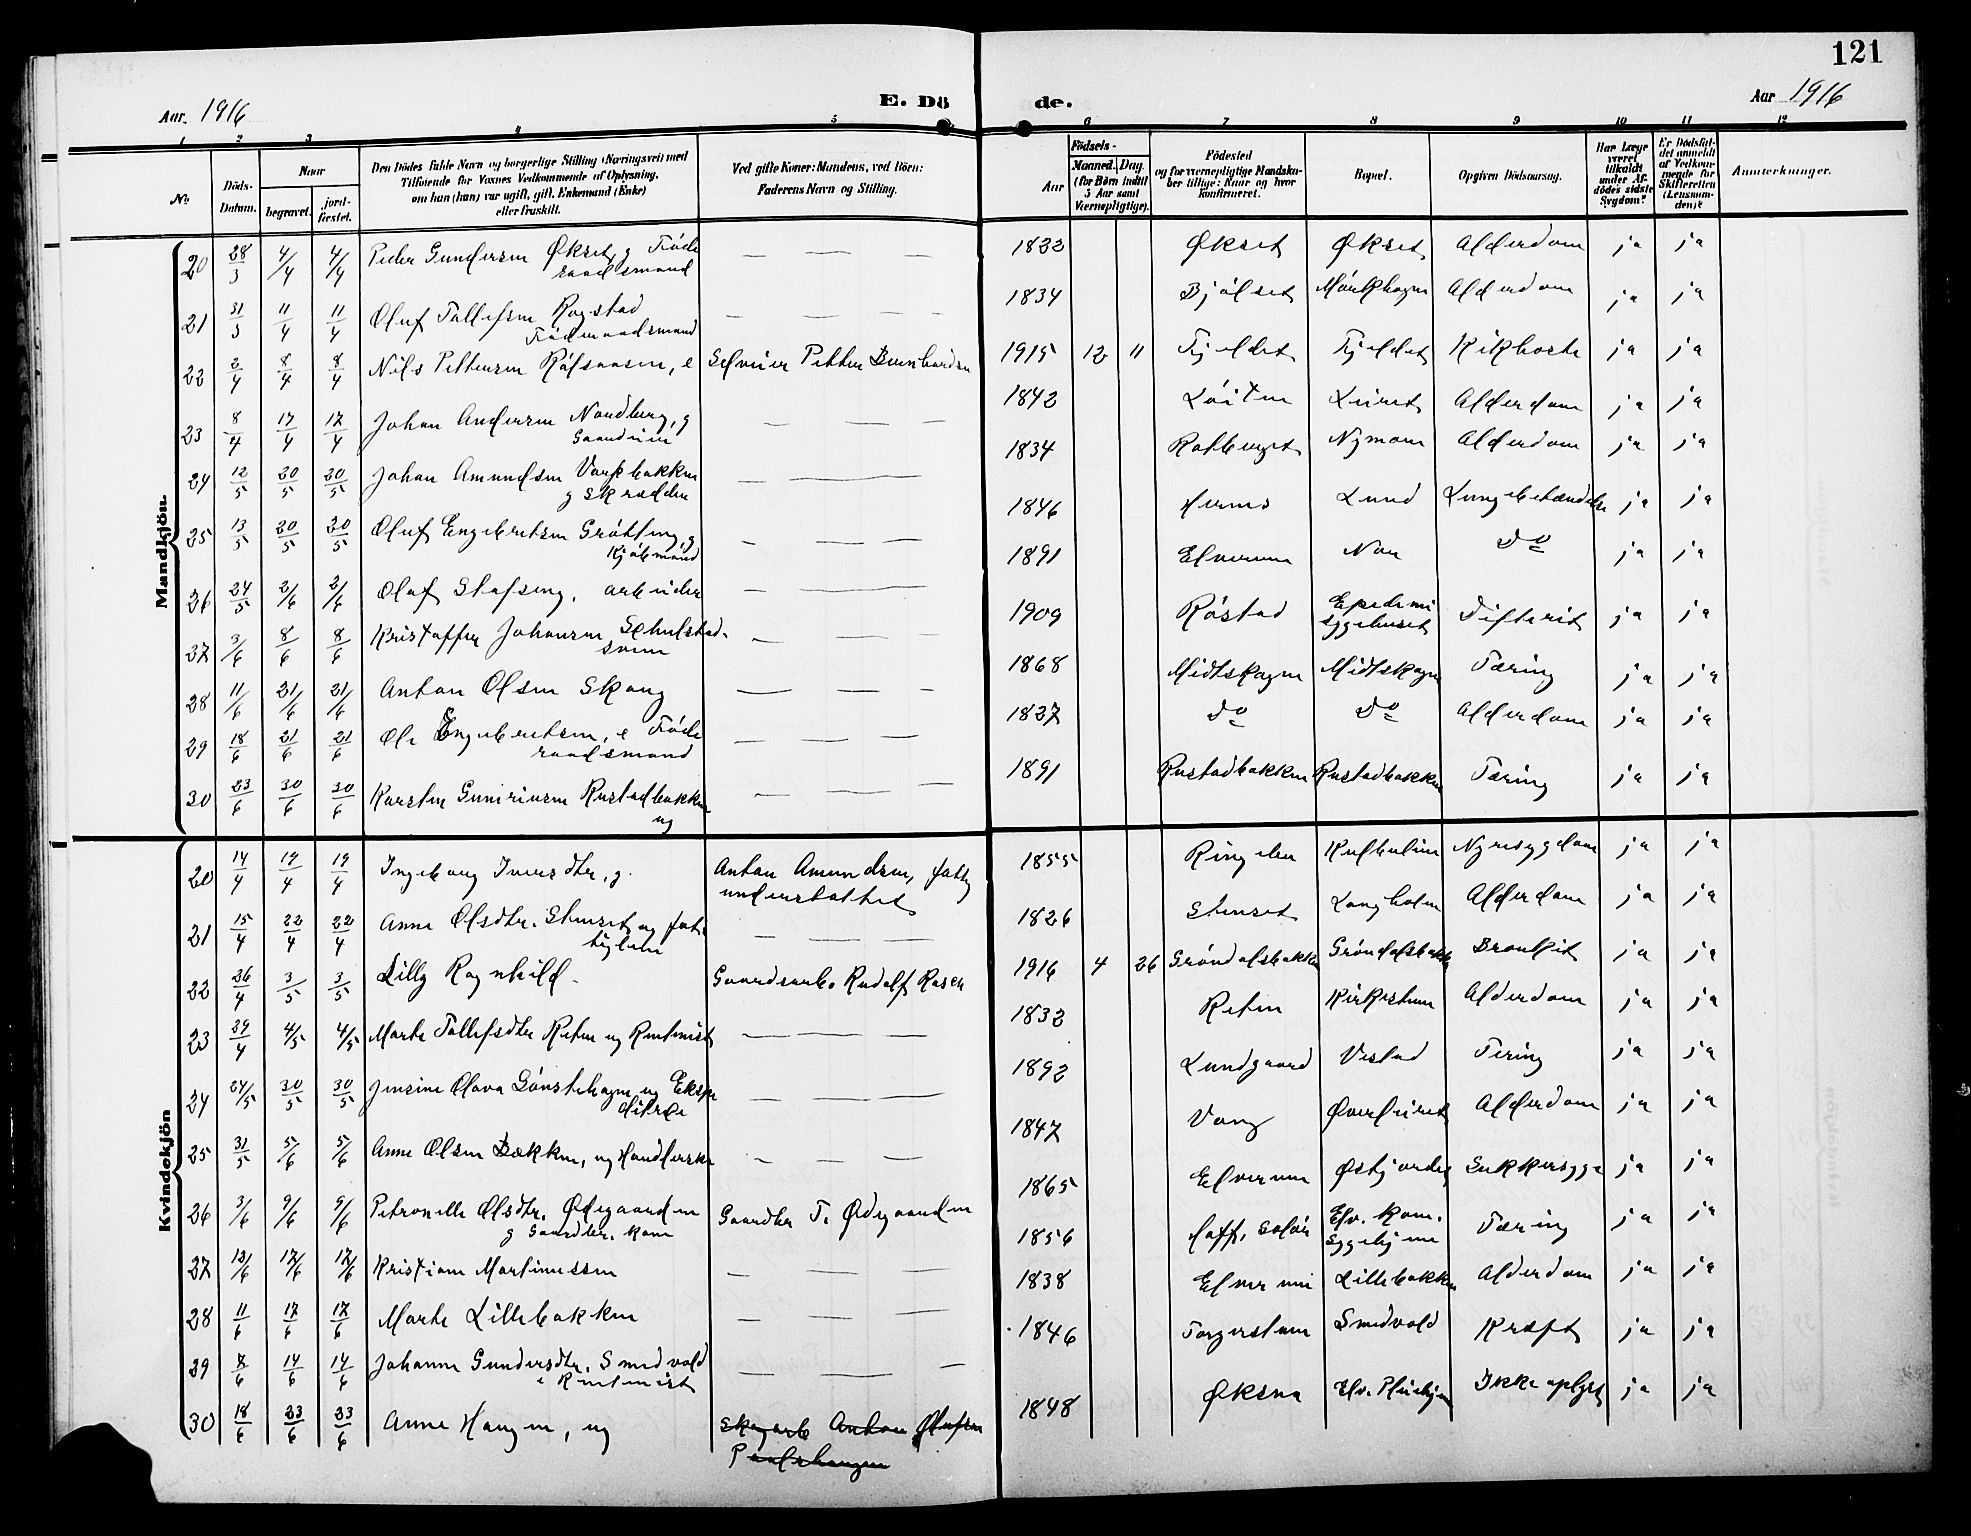 121
Aar. 1916
E. Dö
de.
Aar 1916
1 2 3 4 5 6 7 8 9 10 11 12
No
Döds-
Datum.
Naar
begravet.
jord-
fæstet.
Den Dödes fulde Navn og borgerlige Stilling (Næringsvei) med
Tilföiende for Voxnes Vedkommende af Oplysning,
om han (hun) var ugift, gift, Enkemand (Enke)
eller fraskilt.
Ved gifte Koner: Mandens, ved Börn:
Faderens Navn og Stilling.
Födsels-
Aar
Maaned. Dag.
(for Börn indtil
5 Aar samt
Værnepligtige).
Födested
og for værnepligtige Mandska-
ber tillige: Naar og hvor
konfirmeret.
Bopæl.
Opgiven Dödsaarsag.
Har Læge
været
tilkaldt
under Af-
dödes sidste
Sygdom?
Er Dödsfal-
det anmeldt
af Vedkom-
mende for
Skifteretten
(Lensman-
den)?
Anmærkninger.
Mandkjön.
20 28/3 4/4 4/4 Peder Gundersen Økset, g Föde
raadsmand — — — 1832 Økset Økset Alderdom ja ja
21 31/3 11/4 11/4 Oluf Tollefsen Rogstad
Föderaadsmand — — — — 1834 Bjølset Mörkhagen Alderdom ja ja
22 2/4 8/4 8/4 Nils Pettersen Röfsaasen, e Selveier Petter Bernhardsen 1915 12 11 Fjeldet Fjeldet Kikhoste ja ja
23 8/4 17/4 17/4 Johan Andersen Nordberg, g
Gaardeier — — — 1842 Löiten Leiret Alderdom ja ja
24 12/5 20/5 20/5 Johan Amundsen
g Skrædder — — — 1834 Nymoen Alderdom ja ja
25 13/5 20/5 20/5 Oluf Engebretsen Grötting, g
Kjöbmand — — — 1846 Hernes Lund Lungebetændelse ja ja
26 24/5 2/6 2/6 Oluf Stafseng, arbeider — — — 1891 Elverum Nor Do ja ja
27 3/6 8/6 8/6 Kristoffer Johansen Schulstad-
sveen — — — 1909 Röstad Epidemi
sygehuset Difterit ja ja
28 11/6 21/6 21/6 Anton Olsen Skaug — — — 1868 Midtskogen Midtskogen Tæring ja ja
29 18/6 21/6 21/6 Ole Engebretsen, e Föde
raadsmand — — — 1827 Do Do Alderdom ja ja
30 23/6 30/6 30/6 Karsten Gunerius Rustadbakken
ug — — — 1891 Rustadbakken Rustadbakken Tæring ja ja
Kvindekjön
20 14/4 19/4 19/4 Ingeborg Iversdtr, g. Anton Amundsen, fattig
understöttet 1855 Ringebu Nyresygdom ja ja
21 15/4 22/4 22/4 Anne Olsdtr. Stenset, ug fat-
tiglem — — — 1826 Stenset Langholen Alderdom ja ja
22 26/4 3/5 3/5 Lilly Ragnhild. Gaardsarb. Rudolf Rosen 1916 4 26 Gröndalsbakken Gröndalsbakken Bronkit ja ja
23 29/4 4/5 4/5 Marte Tollefsdtr Reten ug Rentenist — — — 1832 Reten Kirkestuen Alderdom ja ja
24 24/5 30/5 30/5 Jensine Olava Lönstehagen, ug Ekspe
ditrice — — — 1892 Lundgaard Vestad Tering ja ja
25 31/5 5/6 5/6 Anne Olsen Bækken, ug Handlerske — — — 1847 Vang Øverleiret Alderdom ja ja
26 3/6 9/6 9/6 Petronille Olsdtr. Ødegaarden
g Gaardbr. kone Gaardbr T. Ødegaarden 1865 Elverum Østjordet Sukkersyge ja ja
27 12/6 17/6 17/6 Kristiane Martinussen — — — 1856 Hoff, Solör Elv. Kom.
Sygehjem Tæring ja ja
28 11/6 17/6 17/6 Marte Lillebakken — — — 1838 Elverum Lillebakken Alderdom ja ja
29 8/6 14/6 14/6 Johanne Gundersdtr. Smedvold
e Rentenist — — — 1846 Torgerstuen Smedvold Kræft ja ja
30 18/6 23/6 23/6 Anne Haugen, ug Skogarb Anton Olufsen
Paalshaugen 1848 Øksna Elv. Pleiehjem Ikke oplyst ja ja